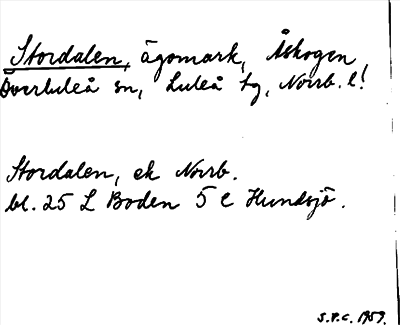 Stordalen, ägomark, Åskogen,
Överluleå sn, Luleå tg, Norrb. l!
Stordalen, ek Norrb.
bl. 25 L Boden 5 c Hundsjö.
S.P.C. 1959.